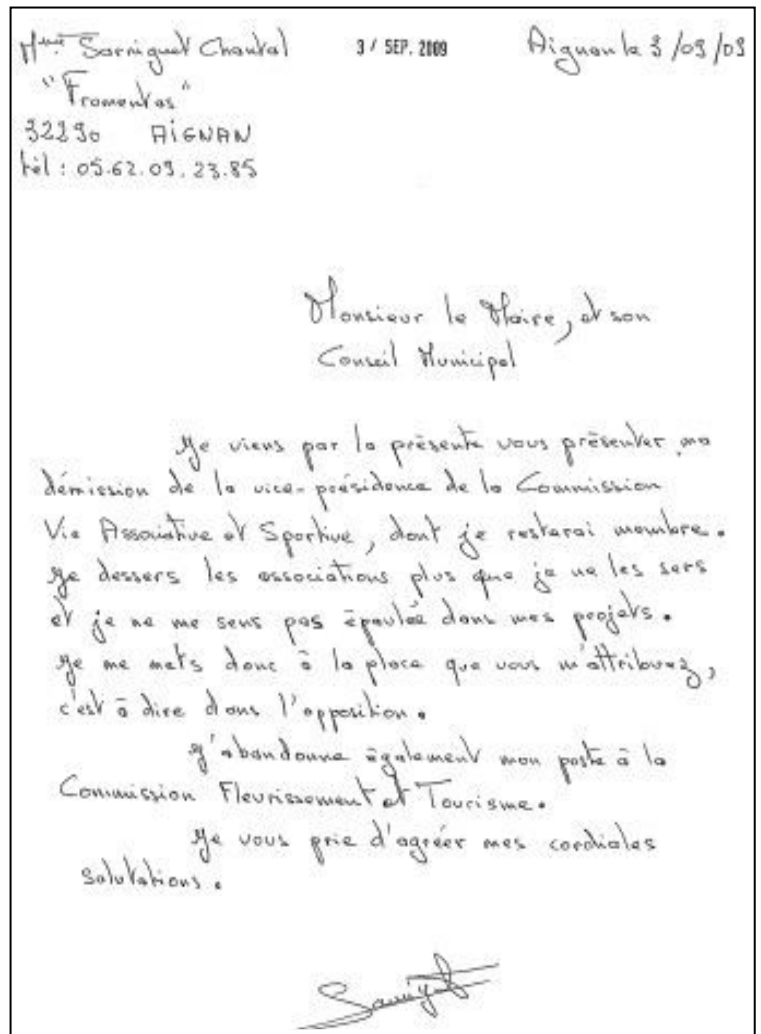 Mme Sarniguet Chantal 3 / SEP. 2009 Aignan le 3/09/09
"Fromentas"
32290 AIGNAN
tèl : 05.62.09.23.85
Monsieur le Maire, et son
Conseil Municipal
Je viens par la présente vous présenter ma
démission de la vice-présidence de la Commission
Vie Associative et Sportive, dont je resterai membre.
Je dessers les associations plus que je ne les sers
et je ne me sens pas épaulée dans mes projets.
Je me mets donc à la place que vous m'attribuez,
c'est à dire dans l'opposition.
J'abandonne également mon poste à la
Commission Fleurissement et Tourisme.
Je vous prie d'agréer mes cordiales
salutations.